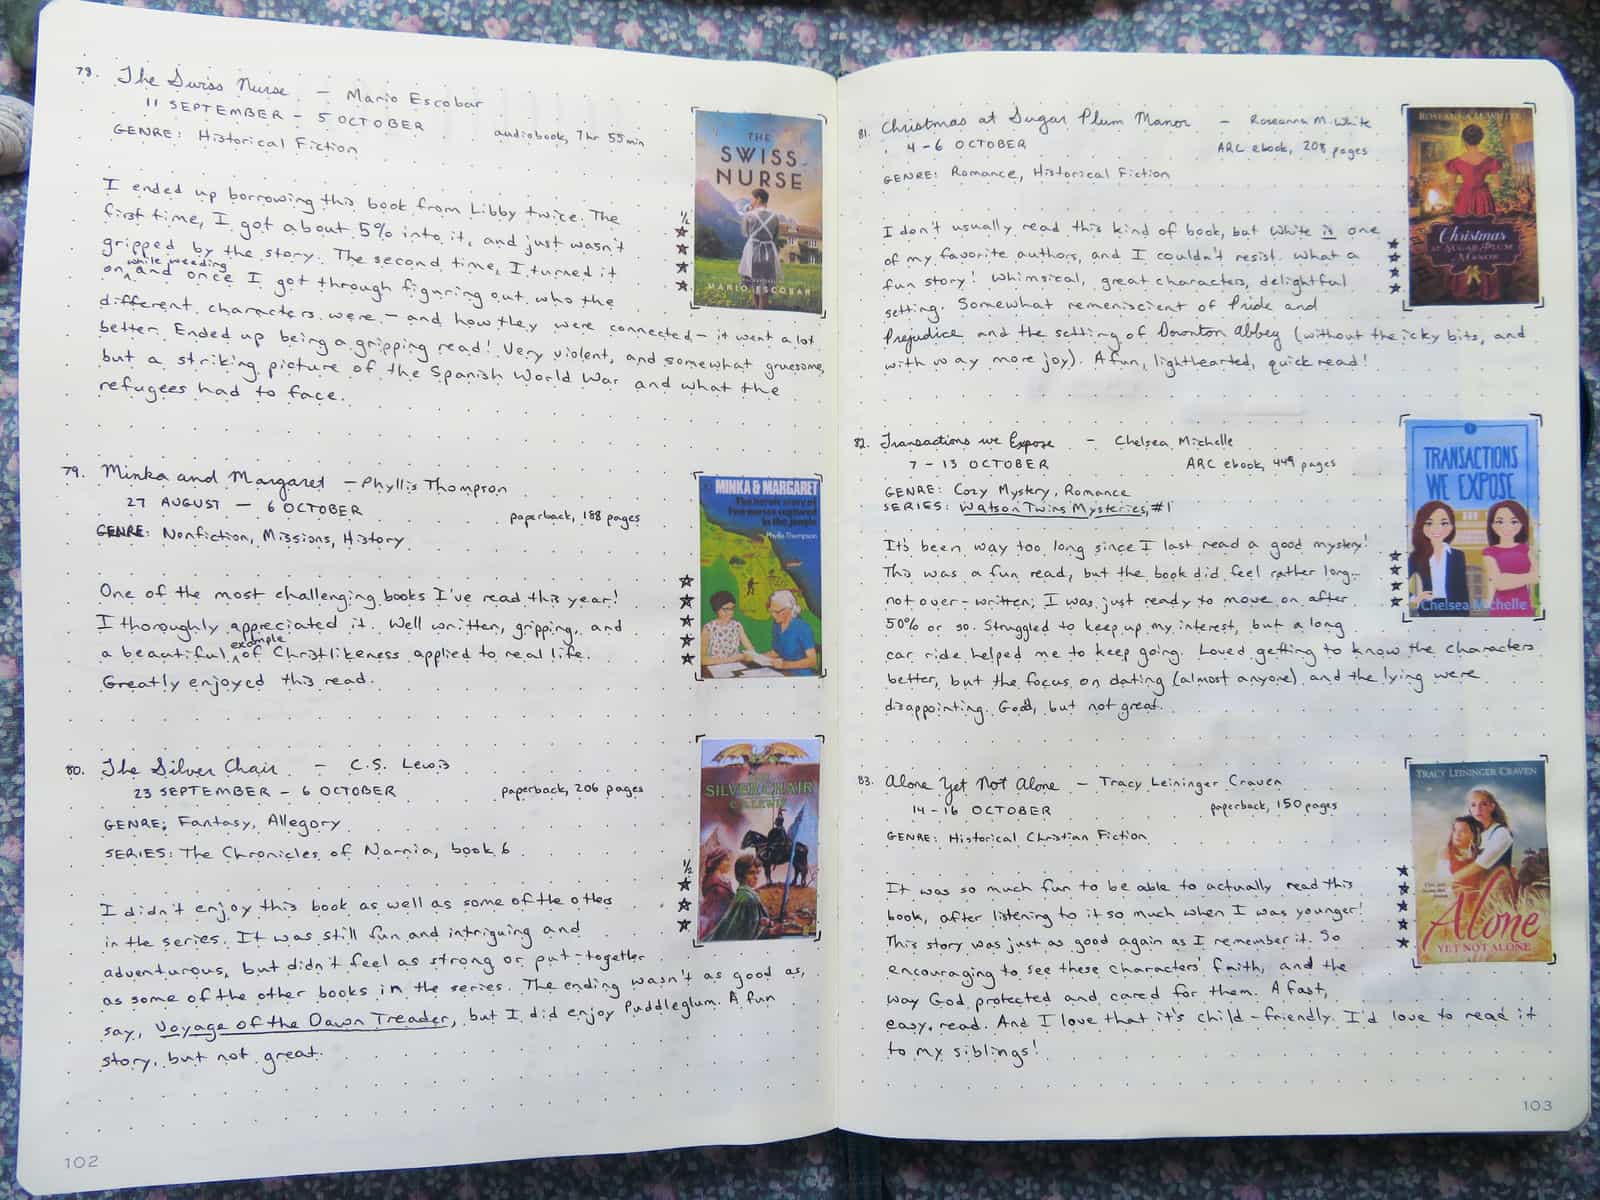 78. The Swiss Nurse — Mario Escobar
11 SEPTEMBER – 5 OCTOBER
audiobook, 7hr 55min
GENRE: Historical Fiction
THE
SWISS
NURSE
MARIO ESCOBAR
I ended up borrowing this book from Libby twice. The
first time, I got about 5% into it, and just wasn't
gripped by the story. The second time, I turned it
on while weeding and once I got through figuring out who the
different characters were – and how they were connected – it went a lot
better. Ended up being a gripping read! Very violent, and somewhat gruesome,
but a striking picture of the Spanish World War and what the
refugees had to face.
1/2
79. Minka and Margaret — Phyllis Thompson
27 AUGUST — 6 OCTOBER
paperback, 188 pages
GENRE: Nonfiction, Missions, History
MINKA & MARGARET
The heroic story of
two nurses captured
in the jungle
Phyllis Thompson
One of the most challenging books I've read this year!
I thoroughly appreciated it. Well written, gripping, and
a beautiful example of Christlikeness applied to real life.
Greatly enjoyed this read.
80. The Silver Chair — C.S. Lewis
23 SEPTEMBER – 6 OCTOBER
paperback, 206 pages
GENRE: Fantasy, Allegory
SERIES: The Chronicles of Narnia, book 6
THE
SILVER CHAIR
C.S. LEWIS
1/2
I didn't enjoy this book as well as some of the others
in the series. It was still fun and intriguing and
adventurous, but didn't feel as strong or put-together
as some of the other books in the series. The ending wasn't as good as,
say, Voyage of the Dawn Treader, but I did enjoy Puddleglum. A fun
story, but not great.
102
81. Christmas at Sugar Plum Manor — Roseanna M. White
4 – 6 OCTOBER
ARC ebook, 208 pages
GENRE: Romance, Historical Fiction
ROSEANNA M. WHITE
Christmas
AT SUGAR PLUM
MANOR
I don't usually read this kind of book, but White is one
of my favorite authors, and I couldn't resist. What a
fun story! Whimsical, great characters, delightful
setting. Somewhat remeniscient of Pride and
Prejudice and the setting of Downton Abbey (without the icky bits, and
with way more joy). A fun, lighthearted, quick read!
82. Transactions We Expose — Chelsea Michelle
7 – 13 OCTOBER
ARC ebook, 449 pages
GENRE: Cozy Mystery, Romance
SERIES: Watson Twins Mysteries, #1
TRANSACTIONS
WE EXPOSE
Chelsea Michelle
It's been way too long since I last read a good mystery!
This was a fun read, but the book did feel rather long...
not over-written; I was just ready to move on after
50% or so. Struggled to keep up my interest, but a long
car ride helped me to keep going. Loved getting to know the characters
better, but the focus on dating (almost anyone) and the lying were
disappointing. Good, but not great.
83. Alone Yet Not Alone — Tracy Leininger Craven
14 – 16 OCTOBER
paperback, 150 pages
GENRE: Historical Christian Fiction
TRACY LEININGER CRAVEN
Alone
YET NOT ALONE
It was so much fun to be able to actually read this
book, after listening to it so much when I was younger!
This story was just as good again as I remember it. So
encouraging to see these characters' faith, and the
way God protected and cared for them. A fast,
easy read. And I love that it's child-friendly. I'd love to read it
to my siblings!
103